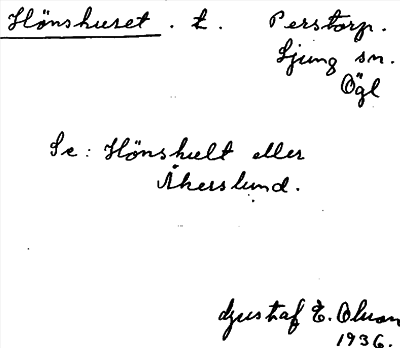 Hönshuset . t. Perstorp.
Ljung sn.
Ögl
Se: Hönshult eller
Åkerslund.
Gustaf E. Olson
1936.